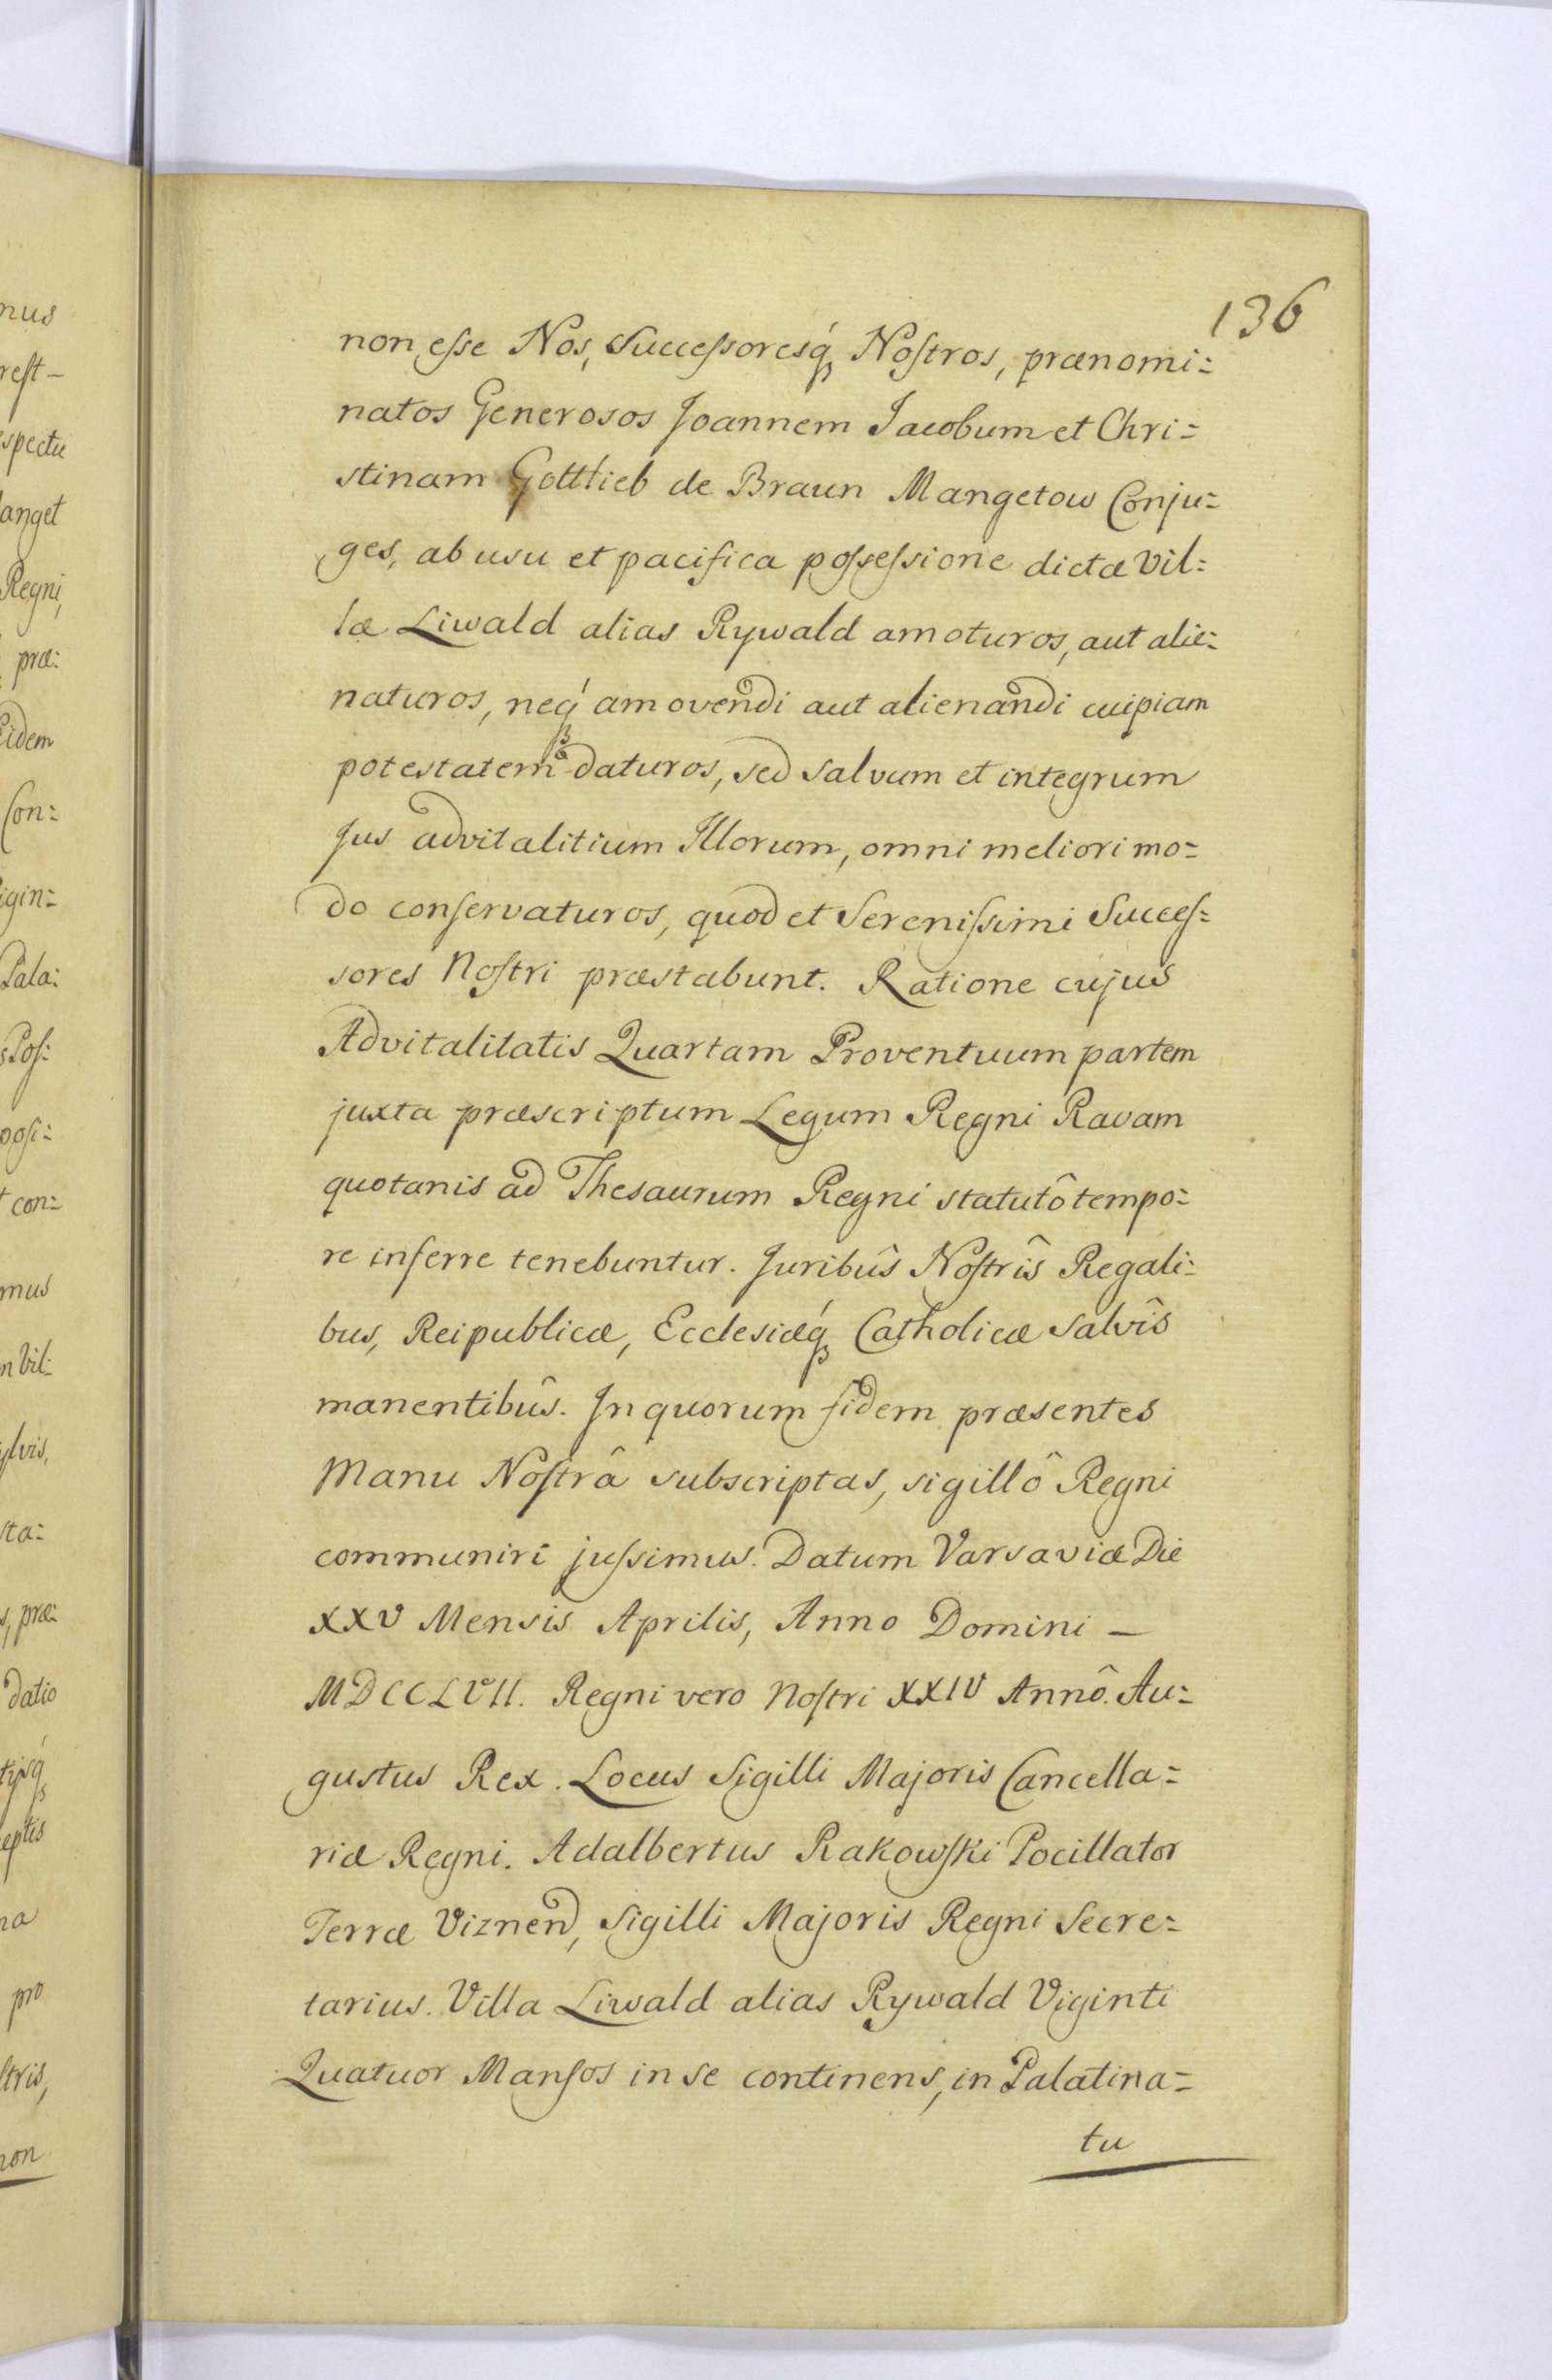 136
non esse Nos, Successoresq́ꝫ Nostros, prænomi:
natos Generosos Joannem Jacobum et Chri:
stinam Gottlieb de Braun Mangetow Conju:
ges, ab usu et pacifica possessione dictæ Vil:
læ Liwald alias Rywald amoturos, aut alie:
naturos, neq́ꝫ amovendi aut alienandi cuipiam
potestatem daturos, sed salvum et integrum
Jus advitalitium Illorum, omni meliori mo:
do conservaturos, quod et Serenissimi Succes:
sores Nostri præstabunt. Ratione cujus
Advitalitatis Quartam Proventuum partem
juxta præscriptum Legum Regni Ravam
quotanis ad Thesaurum Regni statutô tempo:
re inferre tenebuntur. Juribûs Nostrîs Regali:
bus, Reipublicæ, Ecclesiæq́ꝫ Catholicæ salvîs
manentibûs. In quorum fidem præsentes
Manu Nostrâ subscriptas, sigillô Regni
communiri jussimus. Datum Varsaviæ Die
XXV Mensis Aprilis, Anno Domini —
MDCCLVII. Regni vero Nostri XXIV Annô. Au:
gustus Rex. Locus Sigilli Majoris Cancella:
riæ Regni. Adalbertus Rakowski Pocillator
Terræ Viznen, Sigilli Majoris Regni Secre:
tarius. Villa Liwald alias Rywald Viginti
Quatuor Mansos in se continens, in Palatina:
tu
mus
rest —
spectu
anget
Regni,
præ:
Eidem
Con:
igin:
Pala:
Pos:
posi:
con:
mus
Vil:
ylvis,
sta:
præ:
datio
eptis
na
pro
stris,
non